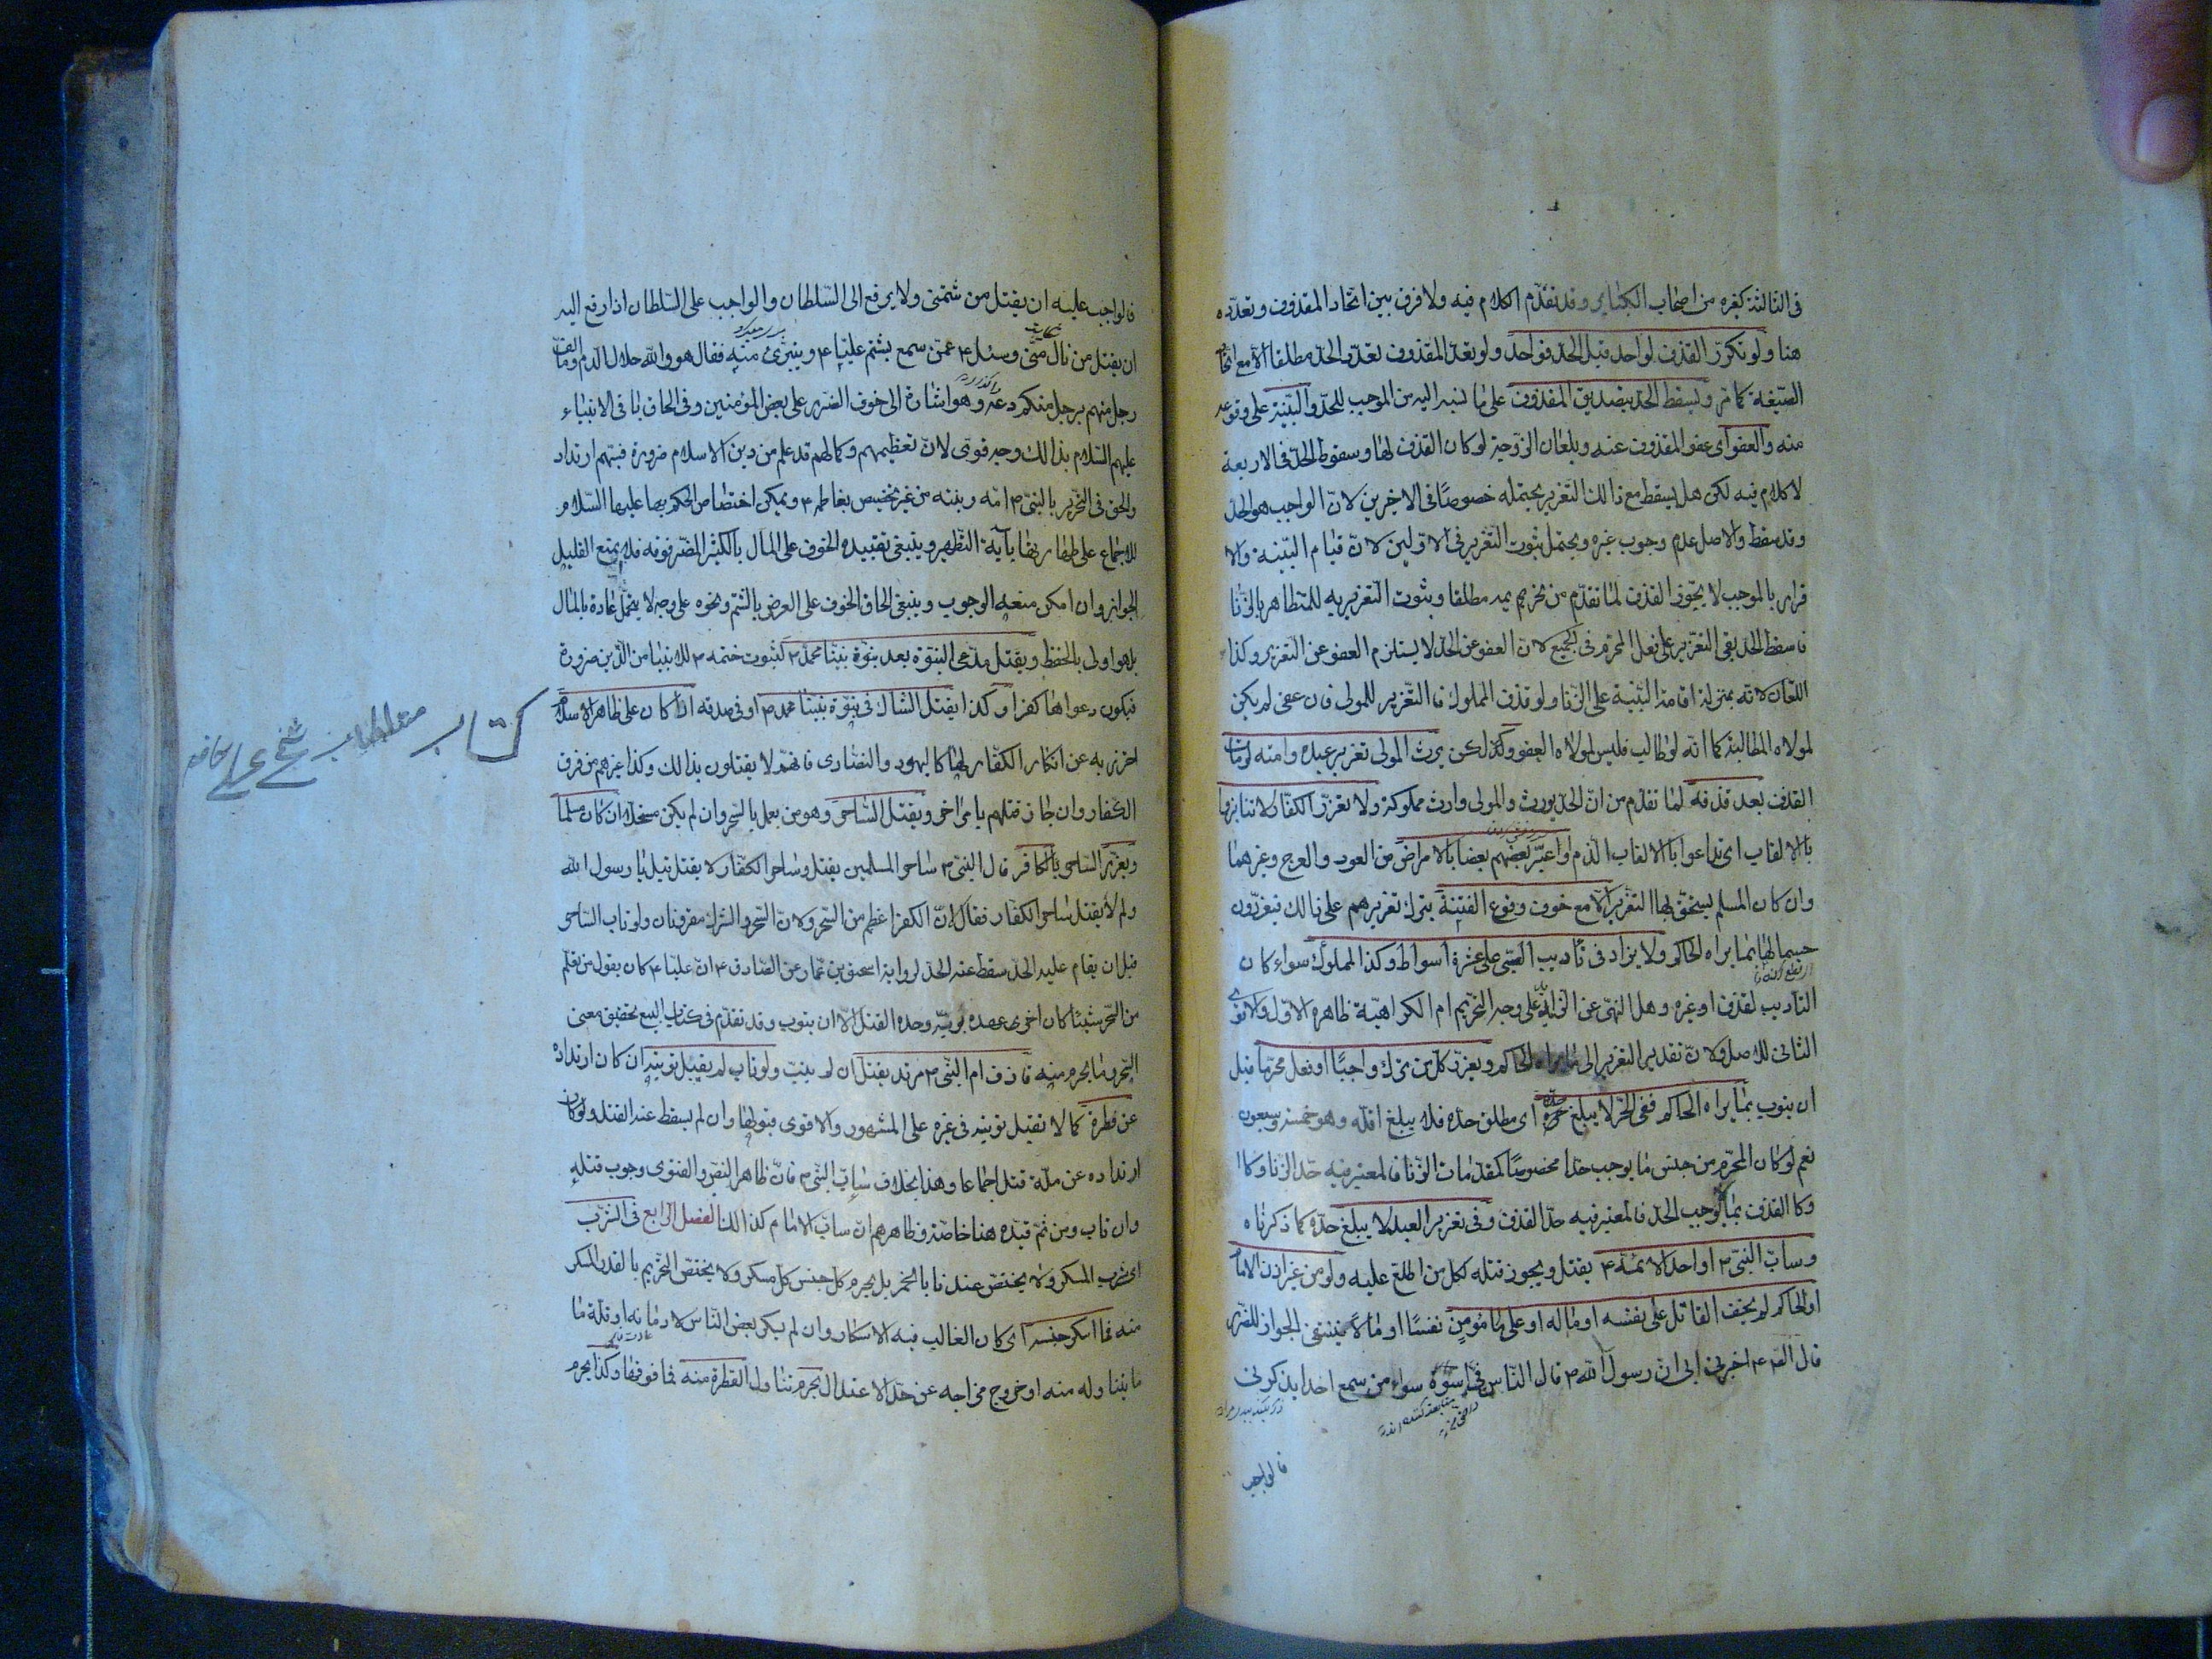 فى الثالثة كغيره من اصحاب الكبائر وقد تقدّم الكلام فيه ولا فرق بين اتحاد المقذوف وتعدّده
هنا ولو تكرّر القذف لواحد قبل الحدّ فواحد ولو تعدّد المقذوف تعدّد الحدّ مطلقا الّا مع اتحاد
الصّيغة كما مر ويسقط الحدّ بتصديق المقذوف على ما نسبه اليه من الموجب للحدّ والبيّنة على وقوعه
منه والعفو اى عفو المقذوف عنه وبلعان الزّوجة لو كان القذف لها وسقوط الحدّ فى الاربعة
لا كلام فيه لكن هل يسقط مع ذالك التّعزير يحتمله خصوصًا فى الاخيرين لانّ الواجب هو الحدّ
وقد سقط والاصل عدم وجوب غيره ويحتمل ثبوت التّعزير فى الاوّلين لانّ قيام البيّنة والا
قرار بالموجب لا يجوّز القذف لما تقدّم من تحريمه مطلقا وثبوت التّعزير به للمتظاهر بالزّنا
فاسقط الحدّ بقى التّعزير على فعل المحرّم فى الجميع لانّ العفو عن الحدّ لا يستلزم العفو عن التّعزير وكذا
اللّعان لانّه بمنزلة اقامة البيّنة على الزّنا ولو قذف المملوك فالتّعزير للمولى فان عفى لم يكن
لمولاه المطالبة كما انّه لو طالب فليس لمولاه العفو وكذا لكن يرث المولى تعزير عبده وامته لو مات
القذف بعد قذفه لما تقدّم من انّ الحدّ يورث والمولى وارث مملوكه ولا تعزّر الكفّار لا تنابزوا
بالالقاب اى تداعوا بالالقاب الذّم او اعيّر بعضهم بعضا بالامراض من العور والعرج وغيرهما
وان كان المسلم يستحقّ بها التّعزير الّا مع خوف وقوع الفتنة بترك تعزيرهم على ذالك فيعزّرون
حسما لها بما يراه الحاكم ولا يزاد فى تاديب الصّبى على عشرة اسواط وكذا المملوك سواء كان
التاديب لقذف او غيره وهل النّهى عن الزّايد على وجه التّحريم ام الكراهيّة ظاهره الاوّل والاقوى
الثانى للاصل ولانّ تقدير التّعزير الى ما يراه الحاكم ويعزّر كلّ من ترك واجبًا او فعل محرّما قبل
ان يتوب بما يراه الحاكم ففى الحرّ لا يبلغ حدّه اى مطلق حدّه فلا يبلغ اقلّه وهو خمسة وسبعون
نعم لو كان المحرّم من جنس ما يوجب حدّا مخصوصًا كمقدّمات الزّنا فالمعتبر فيه حدّ الزّنا وكا
وكا القذف بما لا يوجب الحدّ فالمعتبر فيه حدّ القذف وفى تعزير العبد لا يبلغ حدّه كما ذكرناه
وسابّ النبىّ ص او احد الائمّة ع يقتل ويجوز قتله لكلّ من اطلع عليه ولو من غير اذن الامام
او الحاكم لو لم يخف القاتل على نفسه او ماله او على مؤمن نفسًا او مالًا فينتفى الجواز للضّرر
قال الصّ ع اخبرنى ابى انّ رسول اللّه ص قال النّاس فى اسوة سواء من سمع احدا يذكرنى
فالواجب
فالواجب عليه ان يقتل من شتمنى ولا يرفع الى السّلطان والواجب على السّلطان اذا رفع اليه
ان يقتل من نال منّى وسئل ع عمّن سمع يشتم عليّا ع ويتبرّئ منه فقال هو واللّه حلال الدّم وما الف
رجل منهم برجل منكم دعه وهو اشارة الى خوف الضّرر على بعض المؤمنين وفى الحاق باقى الانبياء
عليهم السّلام بذالك وجه قوى لانّ تعظيمهم وكمالهم قد علم من دين الاسلام ضرورة فسبّهم ارتداد
والحق فى التّحرير بالنبىّ ص امّه وبنته من غير تخصيص بفاطمه ع ويمكن اختصاص الحكم بها عليها السّلام
للاجماع على طهارتها بآية التّطهير وينبغى تقييد الخوف على المال بالكثير المضرّ فوته فلا يمنع القليل
الجواز وان امكن منعه الوجوب وينبغى الحاق الخوف على العرض بالشّتم ونحوه على وجه لا يتحمّل عادة بالمال
بل هو اولى بالحفظ ويقتل مدّعى النبوّة بعد نبوّة نبيّنا محمّد ص لثبوت ختمه ص للانبيا من الدّين ضرورة
فيكون دعواها كفرا وكذا يقتل الشاك فى نبوّة نبيّنا محمد ص او فى صدقه اذا كان على ظاهر الاسلام
احترز به عن انكار الكفّار لها كاليهود والنصّارى فانّهم لا يقتلون بذالك وكذا غيرهم من فرق
الكفار وان جاز قتلهم بامر اخر ويقتل السّاحر وهو من يعمل بالسّحر وان لم يكن مستحلّا ان كان مسلما
ويعزّر السّاحر الكافر قال النبىّ ص ساحر المسلمين يقتل وساحر الكفّار لا يقتل قيل يا رسول اللّه
ولم لا يقتل ساحر الكفّار فقال لانّ الكفر اعظم من السّحر ولانّ السّحر والشّرك مقرونان ولو تاب السّاحر
قبل ان يقام عليه الحدّ سقط عنه الحدّ لرواية اسحق بن عمّار عن الصّادق ع انّ عليّا ع كان يقول من تعلّم
من السّحر شيئا كان اخر عهده بربّه وحدّه القتل الّا ان يتوب وقد تقدّم فى كتاب البيع تحقيق معنى
السّحر وما يحرم منه قاذف ام النّبى ص مرتد يقتل ان لم يتب ولو تاب لم يقبل توبته ان كان ارتداده
عن فطرة كما لا تقبل توبته فى غيره على المشهور والاقوى قبولها وان لم يسقط عنه القتل ولو كان
ارتداده عن ملّة قتل اجماعا وهذا بخلاف سابّ النّبى ص فانّ ظاهر النصّ والفتوى وجوب قتله
وان تاب ومن ثمّ قيّده هنا خاصّة وظاهرهم انّ سابّ الامام كذالك الفصل الرّابع فى الشّرب
اى شرب المسكر ولا يختصّ عندنا بالخمر بل يحرم كلّ جنس كلّ مسكر ولا يختصّ التّحريم بالقدر المسكر
منه فما اسكر جنسه اى كان الغالب فيه الاسكار وان لم يسكر بعض النّاس لادمانه او قلّة ما
ما يتناوله منه او خروج مزاجه عن حدّ الاعتدال يحرم تناول القطرة منه فما فوقها وكذا يحرم
كتاب